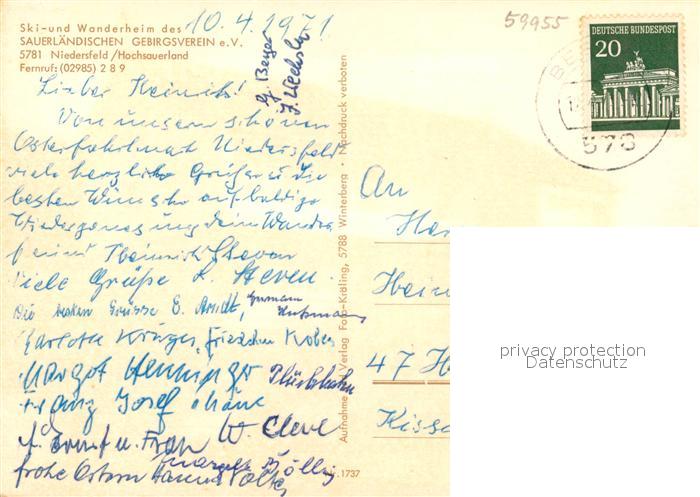 Ski-und Wanderheim des
SAUERLÄNDISCHEN GEBIRGSVEREIN e.V.
5781 Niedersfeld/Hochsauerland
Fernruf: (02985) 2 8 9
10.4.1971
59955
DEUTSCHE BUNDESPOST
20
573
G. Berger
Lieber Heinrich!
Von unserer schönen
Osterfahrt nach Niedersfeld
viele herzliche Grüße u. die
besten Wünsche auf baldige
Wiedergenesung dein Wander
freund Heinrich Steven
Viele Grüße L. Steven.
Die besten Grüsse E. Arndt, Hermann
Karlotte Krüger, Friedchen
Margot
Franz Josef
u. Frau W. Cleve
frohe Ostern Hanna
Aufnahme und Verlag Foto-Kräling, 5788 Winterberg · Nachdruck verboten
1737
An
Her
Hein
47 H
Kiss
privacy protection
Datenschutz